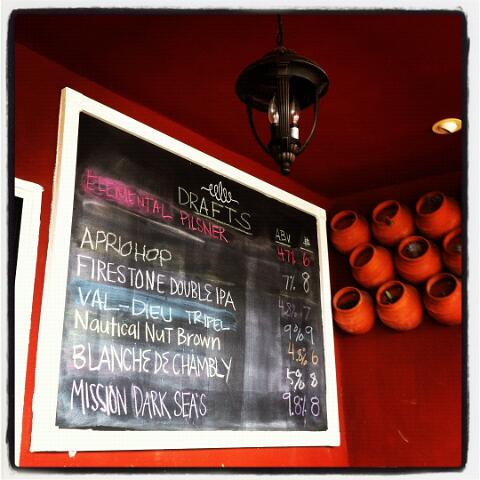 DRAFTS ABV
ELEMENTAL PILSNER 4.7% 6
APRIOHOP 7% 8
FIRESTONE DOUBLE IPA 4.8% 7
VAL-DIEU TRIPEL 9% 9
Nautical Nut Brown 4.8% 6
BLANCHE DE CHAMBLY 5% 8
MISSION DARK SEA'S 9.8% 8